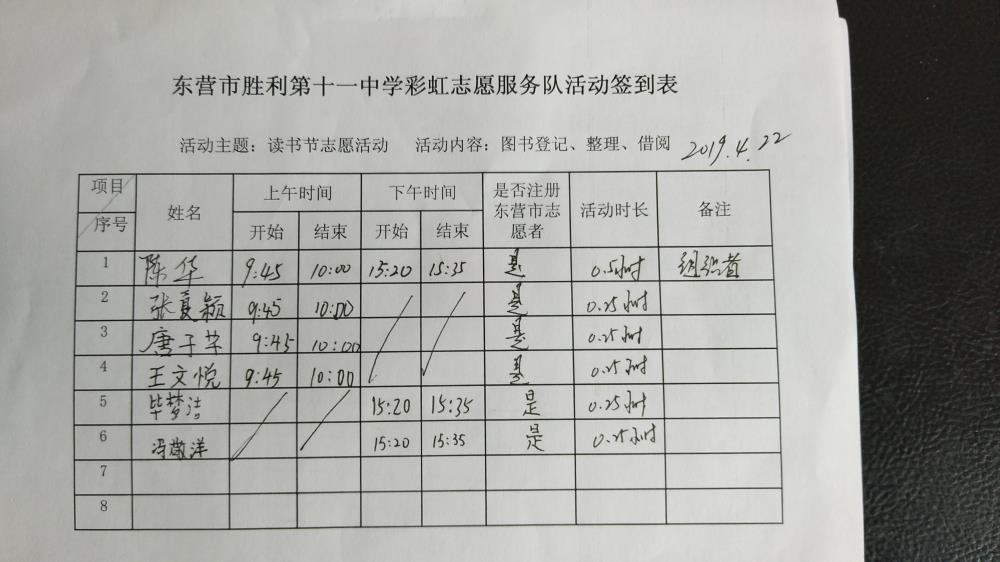 东营市胜利第十一中学彩虹志愿服务队活动签到表
活动主题：读书节志愿活动 活动内容：图书登记、整理、借阅 2019.4.22
项目 序号 姓名 上午时间 下午时间 是否注册东营市志愿者 活动时长 备注
开始 结束 开始 结束
1 陈华 9:45 10:00 15:20 15:35 是 0.5小时 组织者
2 张夏颖 9:45 10:00 是 0.25小时
3 唐子芊 9:45 10:00 是 0.25小时
4 王文悦 9:45 10:00 是 0.25小时
5 毕梦洁 15:20 15:35 是 0.25小时
6 冯敬洋 15:20 15:35 是 0.25小时
7
8